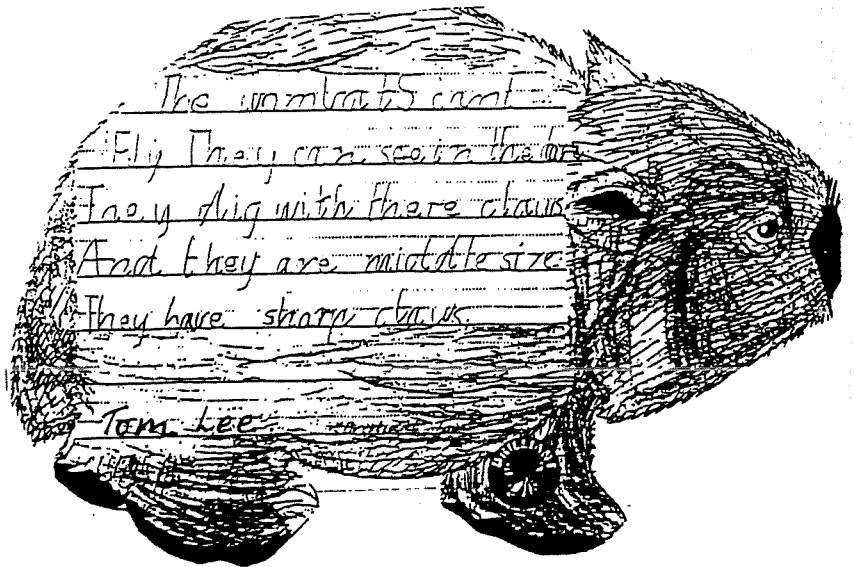 The wombats cant
Fly They can see in the
They dig with there claws
And they are middle size
They have sharp claws.
Tom Lee